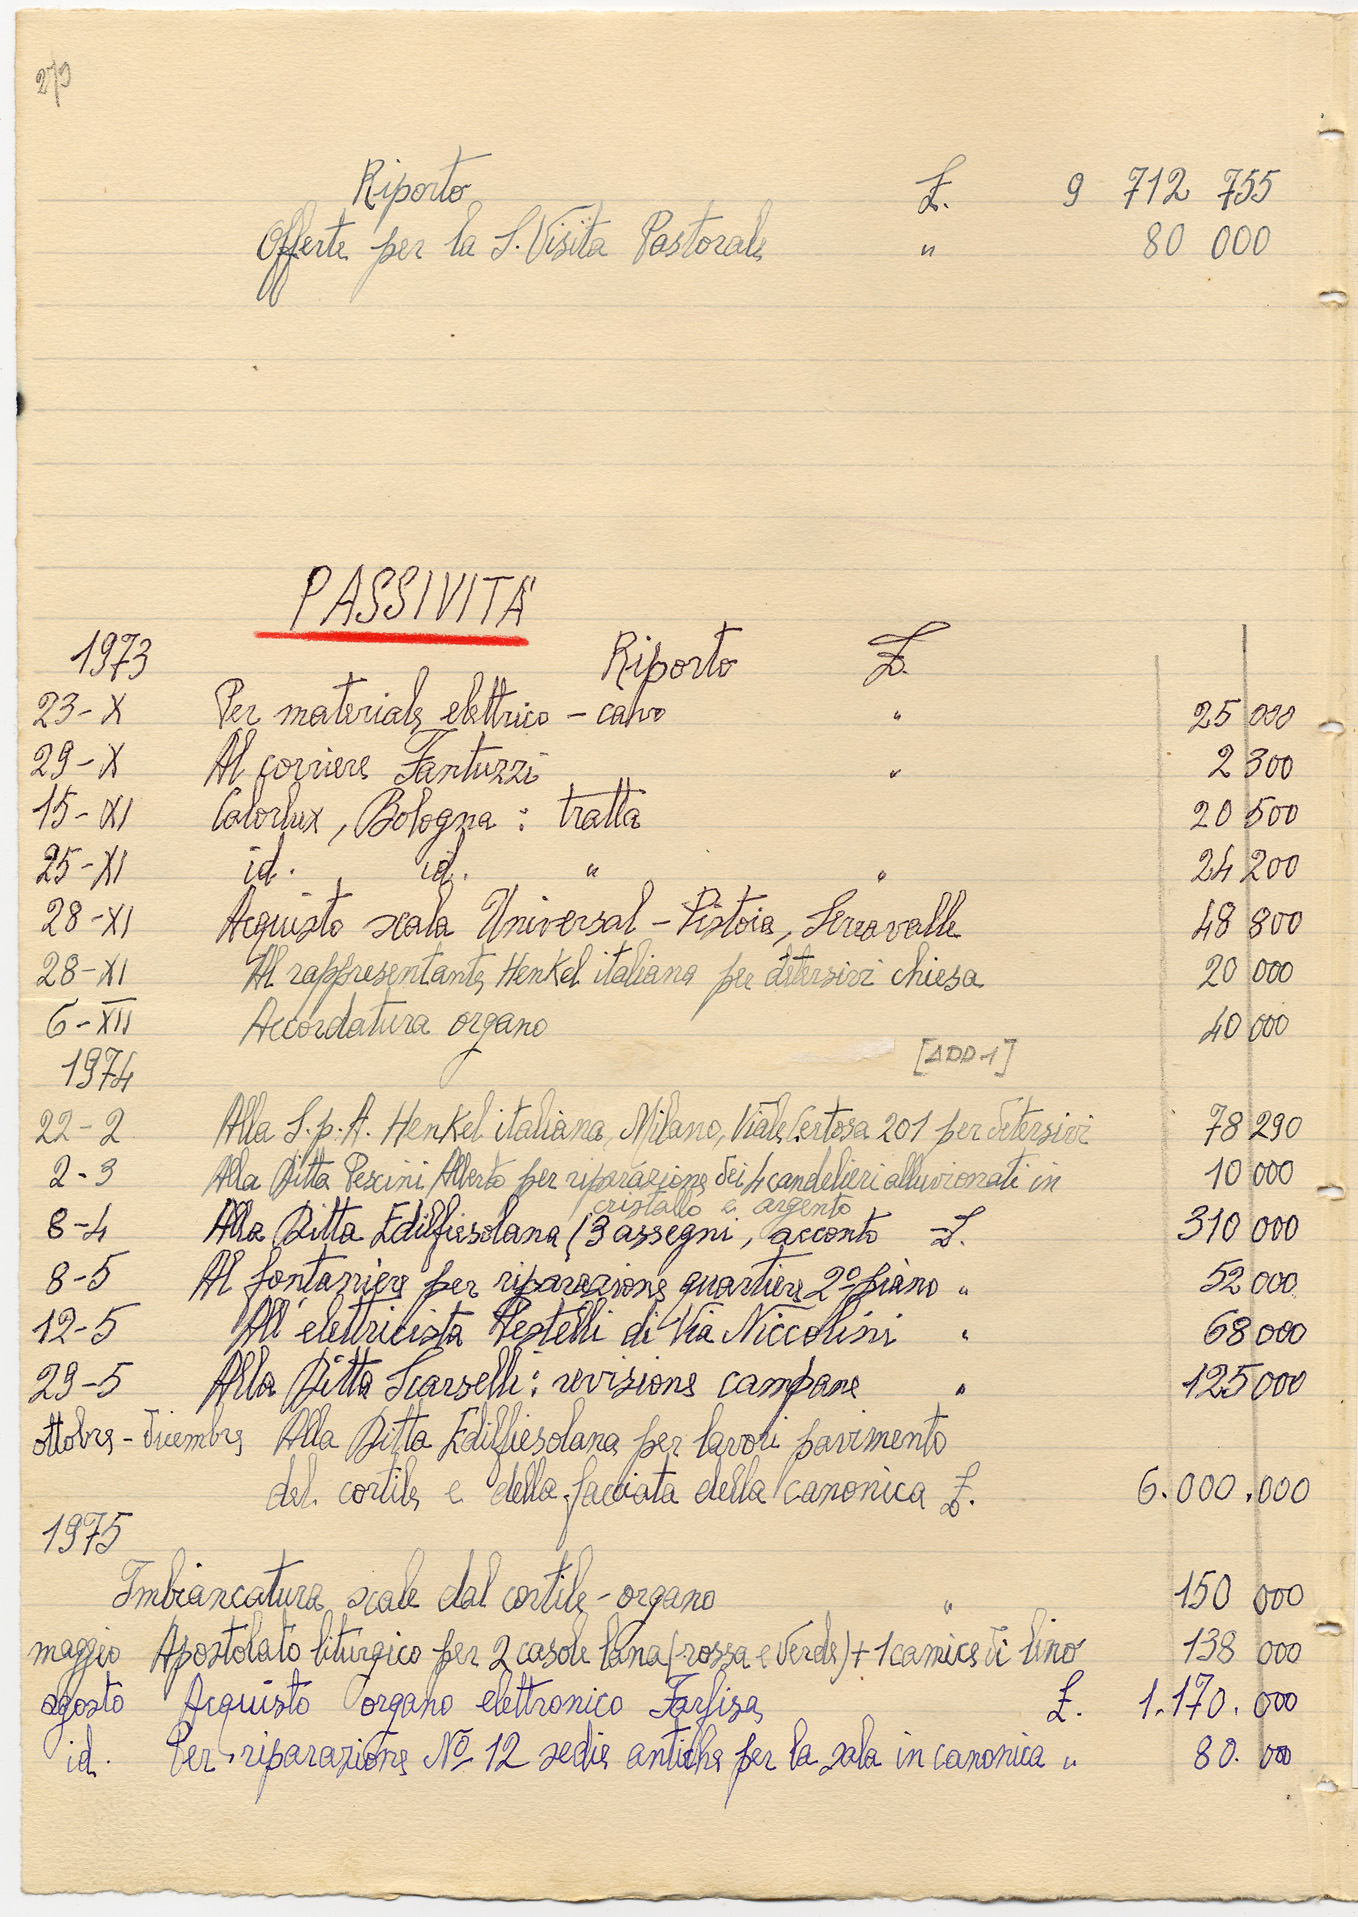 279
Riporto £. 9 712 755
Offerte per la S. Visita Pastorale " 80 000
PASSIVITÀ
1973 Riporto £.
23-X Per materiale elettrico - cavo " 25 000
29-X Al corriere Fantuzzi " 2 300
15-XI Calorlux, Bologna : tratta 20 500
25-XI id. id. " " 24 200
28-XI Acquisto scala Universal - Pistoia, Serravalle 48 800
28-XI Al rappresentante Henkel italiana per detersivi chiesa 20 000
6-XII Accordatura organo 40 000
1974 [ADD-1]
22-2 Alla S.p.A. Henkel italiana, Milano, Viale Certosa 201 per detersivi 78 290
2-3 Alla Ditta Pescini Alberto per riparazione dei 4 candelieri alluvionati in 10 000
cristallo e argento
8-4 Alla Ditta Edilfiesolana (3 assegni, acconto £. 310 000
8-5 Al fontaniere per riparazione quartiere 2º piano " 52 000
12-5 All'elettricista Restelli di Via Niccolini " 68 000
29-5 Alla Ditta Scarselli: revisione campane " 125 000
ottobre - dicembre Alla Ditta Edilfiesolana per lavori pavimento
del cortile e della facciata della canonica £. 6.000.000
1975
Imbiancatura scale dal cortile - organo " 150 000
maggio Apostolato liturgico per 2 casole lana (rossa e verde) + 1 camice di lino 138 000
agosto Acquisto organo elettronico Farfisa £. 1.170.000
id. Per riparazione Nº 12 sedie antiche per la sala in canonica " 80.000